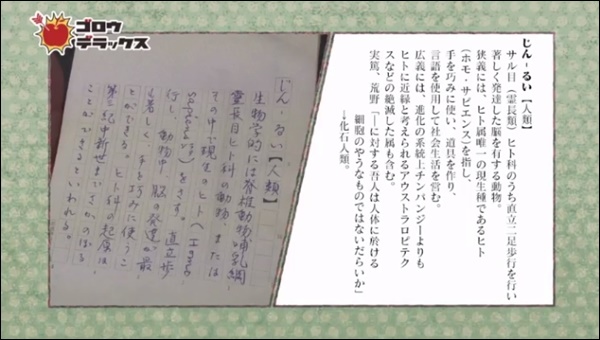 ゴロウ
デラックス
じん‐るい【人類】
サル目(霊長類)ヒト科のうち直立二足歩行を行い
著しく発達した脳を有する動物。
狭義には、ヒト属唯一の現生種であるヒト
(ホモ・サピエンス)を指し、
手を巧みに使い、道具を作り、
言語を使用して社会生活を営む。
広義には、進化の系統上チンパンジーよりも
ヒトに近縁と考えられるアウストラロピテク
スなどの絶滅した属も含む。
実篤、荒野「―に対する吾人は人体に於ける
細胞のやうなものではないだらいか」
→化石人類。
じん-るい【人類】
生物学的には脊椎動物、哺乳綱、
霊長目ヒト科の動物、または
その中で現生のヒト(Homo
sapiens)をさす。直立歩
行し、動物中、脳の発達が最
も著しく、手を巧みに使うこ
とができる。ヒト科の起原は
第三紀中新世までさかのぼる
ことができるといわれる。